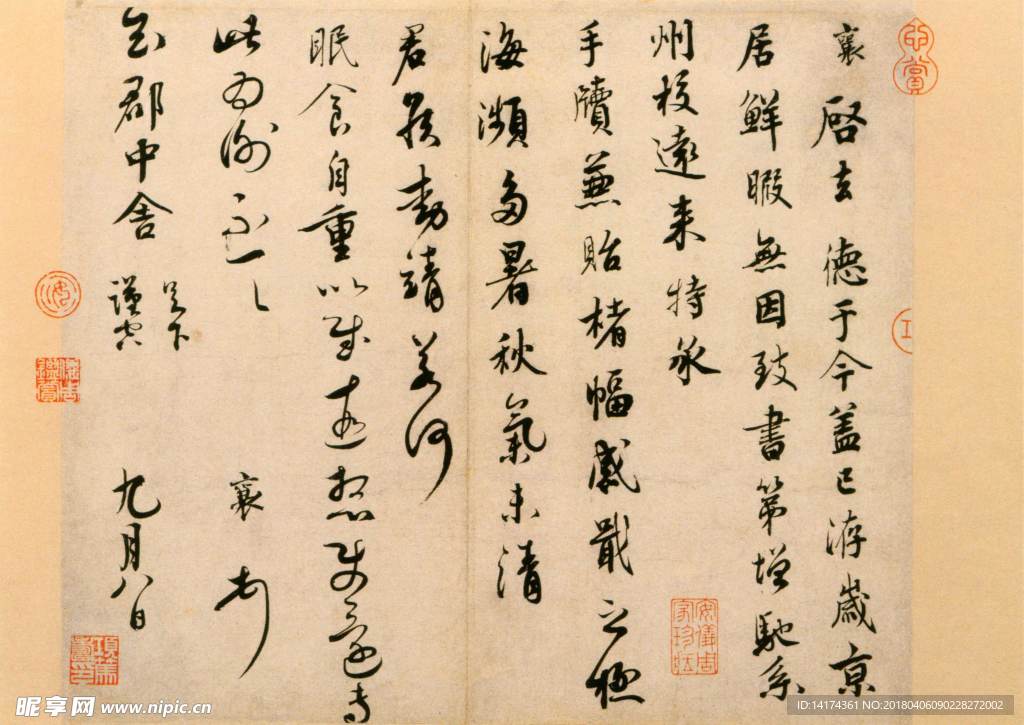 襄啓去德于今蓋已洊歲京
居鮮暇無因致書第增馳系
州校遠來特承
手牘兼貽楮幅感戢之極
海瀕多暑秋氣未清
君侯動靖若何
眠食自重以慰遠想使還專
此為謝不一一 襄頓首
知郡中舍足下
謹空
九月八日
心賞
安儀周家珍藏
昵享网 www.nipic.cn
ID:14174361 NO:20180406090228272002